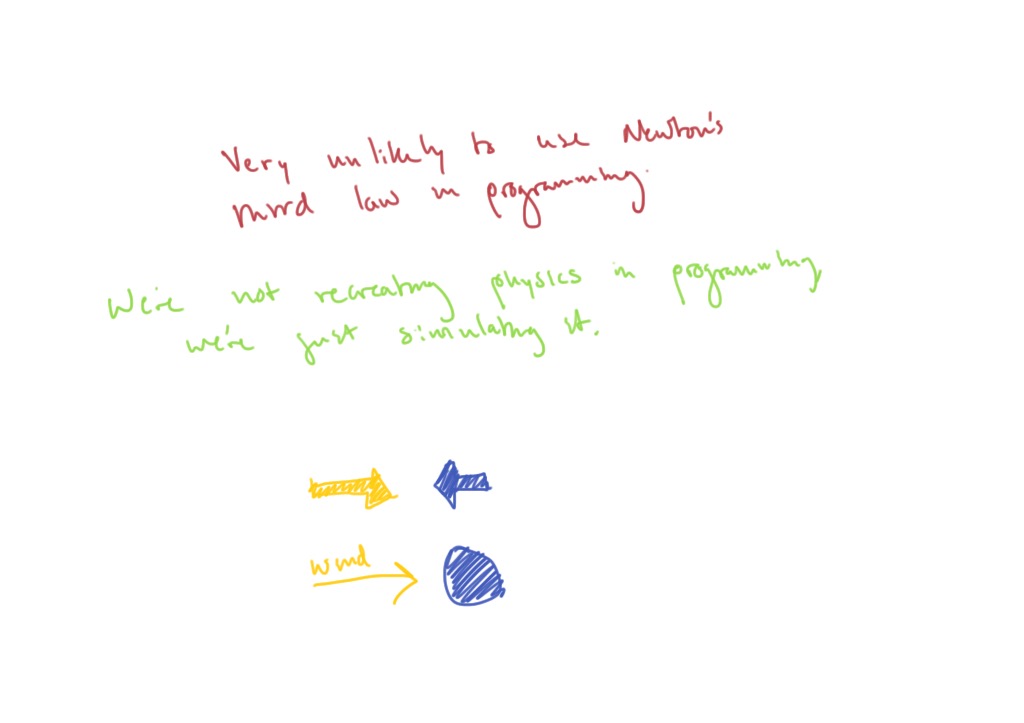 Very unlikely to use Newton's
third law in programming.
We're not recreating physics in programming,
we're just simulating it.
wind